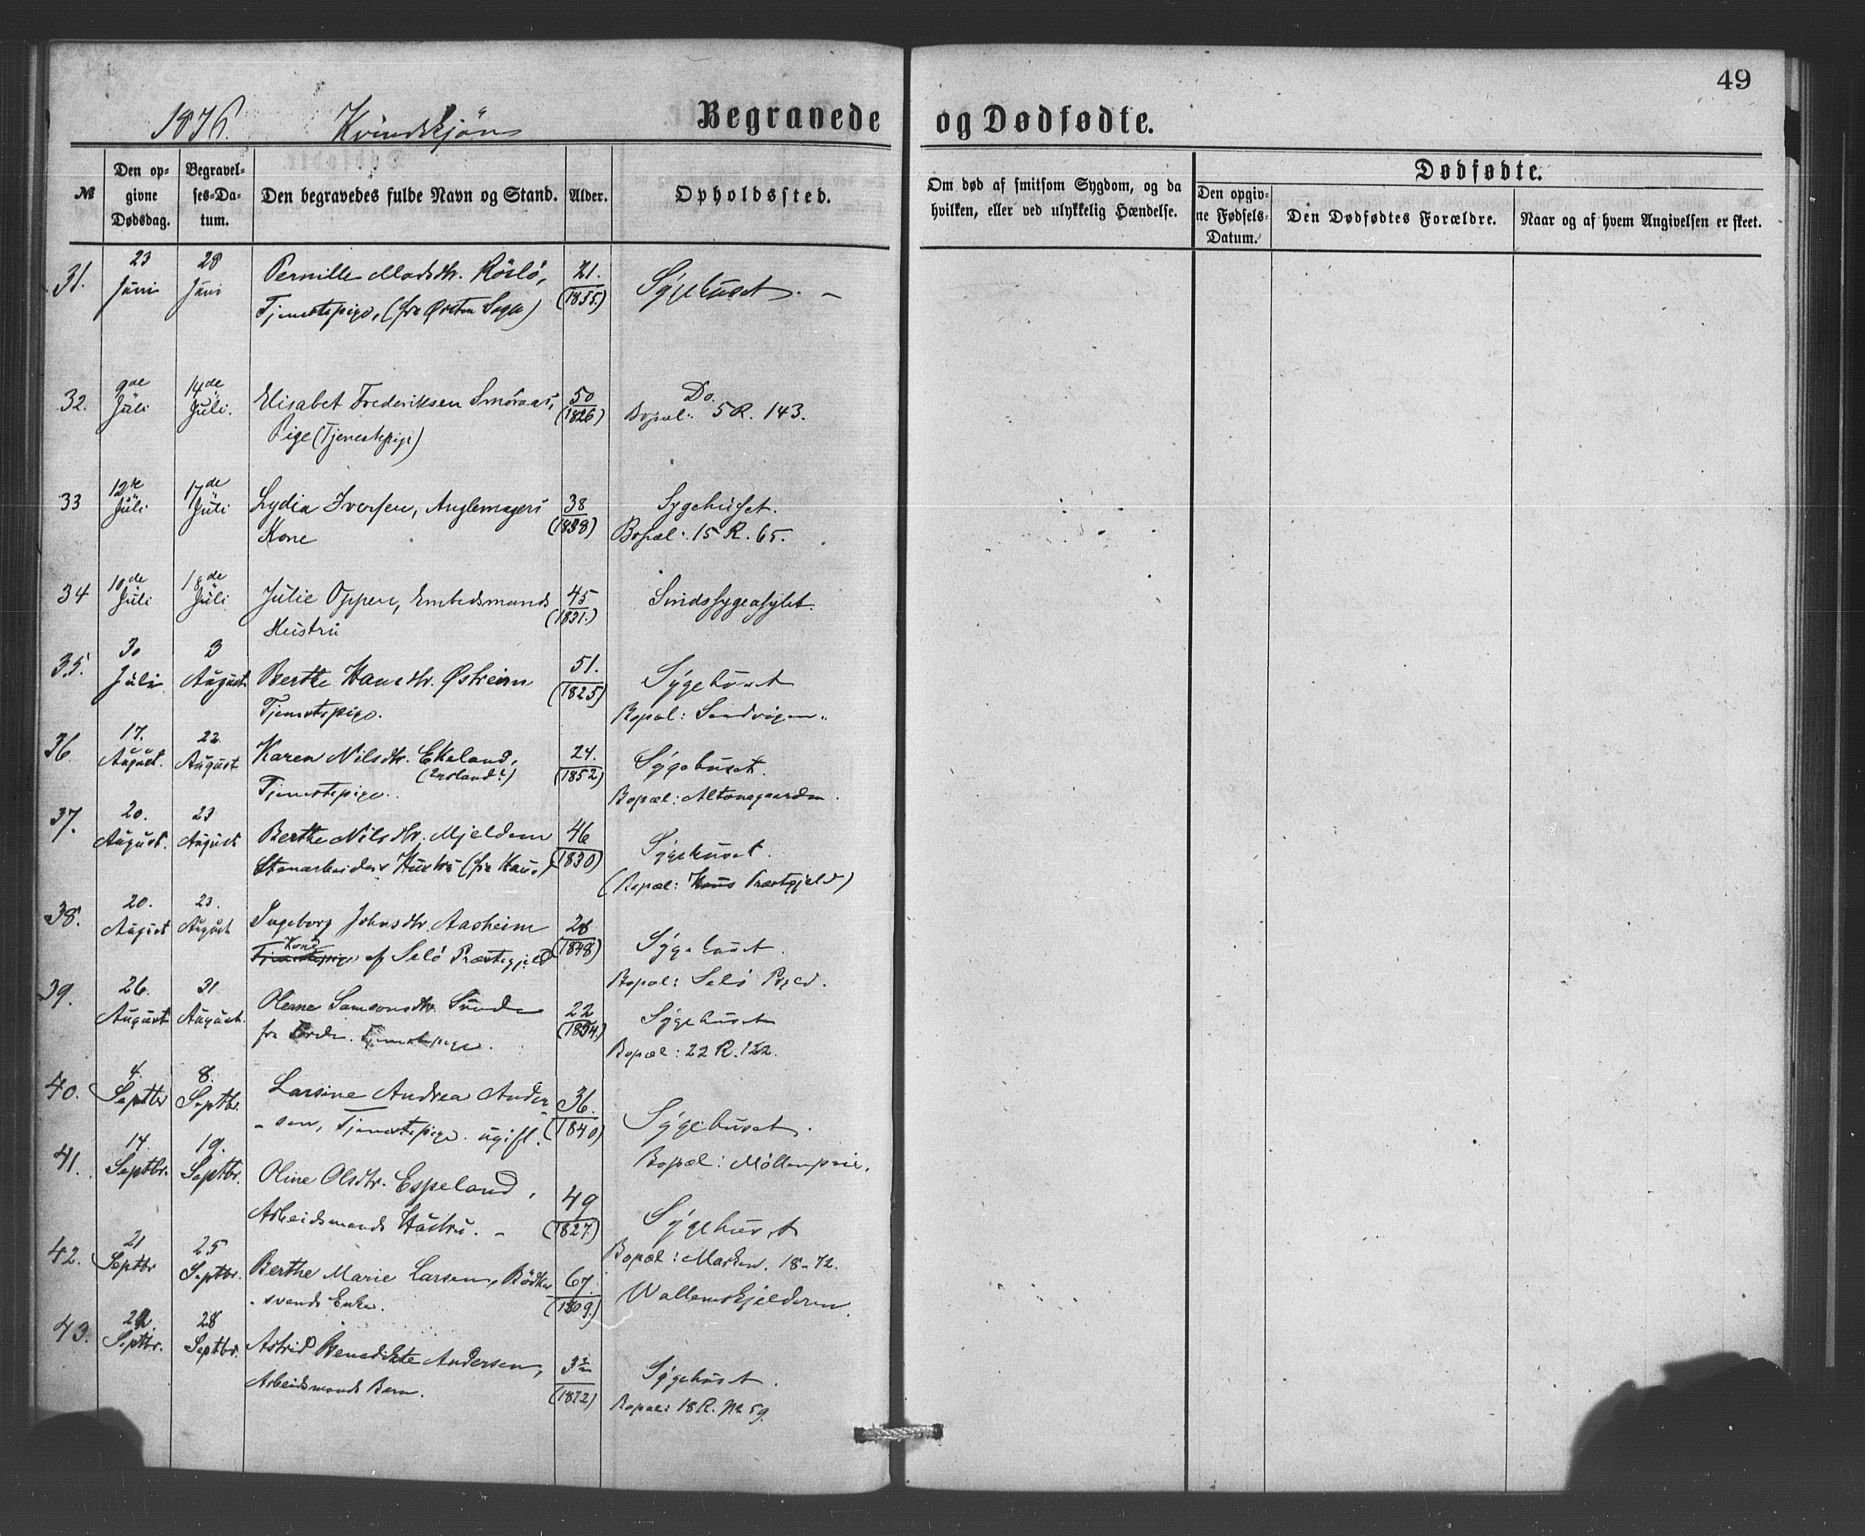 49
1876. Kvindekjøn
Begravede og Dødfødte.
№
Den opgivne Dødsdag.
Begravelses-Datum.
Den begravedes fulde Navn og Stand.
Alder.
Opholdssted.
Om død af smitsom Sygdom, og da hvilken, eller ved ulykkelig Hændelse.
Dødfødte.
Den opgivne Fødsels-Datum.
Den Dødfødtes Forældre.
Naar og af hvem Angivelsen er skeet.
31. 23 Juni 28 Juni Pernille Madsdtr. Röslö, 21. (1855) Sygehuset. –
Tjenestepige, (fra Østen Sogn)
32. 9de Juli 14de Juli. Elisabet Frederiksen Smöraas, 50 (1826) Do.
Pige (Tjenestepige) Bopæl: 5 R. 143.
33 12te Juli 17de Juli Lydia Iversen, Anglemagers 38 (1838) Sygehuset.
Kone Bopæl: 15 R. 65.
34 10de Juli 18de Juli Julie Oppen, Embedsmands 45 (1831.) Sindssygeasylet.
Hustru
35. 30 Juli 3 August. Berthe Hansdtr. Østreim 51. (1825) Sygehuset
Tjenestepige. Bopæl: Sandvigen.
36. 17. August. 22. August Karen Nilsdtr. Ekeland, 24. (1852) Sygehuset.
Tjenestepige. Bopæl: Altonagaarden.
37. 20. August. 23 August Berthe Nilsdtr. Mjeldem 46 (1830) Sygehuset.
Stenarbeiders Hustru (fra Haus) (Bopæl: Haus Præstgjeld)
38. 20. August 23. August Ingeborg Johnsdtr. Aasheim 28 (1848) Sygehuset.
Kone
Tjenestepige af Selö Præstegjeld Bopæl: Selö Pgjeld.
39. 26. August 31 August. Olene Samsonsdtr. Sunde 22 (1854) Sygehuset
fra Förde. Tjenestepige. Bopæl: 22 R. 122.
40. 4. Septbr 8. Septbr. Larsine Andrea Ander 36. (1840) Sygehuset.
-sen, Tjenestepige. ugift. Bopæl: Möllenpris.
41. 14. Septbr. 19. Septbr. Oline Olsdtr. Espeland, 49 (1827.) Sygehuset
Arbeidsmands Hustru. – Bopæl: Marken. 18-72.
42. 21 Septbr 25 Septbr. Berthe Marie Larsen, Bödker 67. (1809.) Wallemskjelderen.
-svends Enke.
43. 22. Septbr. 28 Septbr. Astrid Benedikte Andersen, 3 (1872) Sygehuset.
Arbeidsmands Barn. Bopæl: 18 R. № 59.